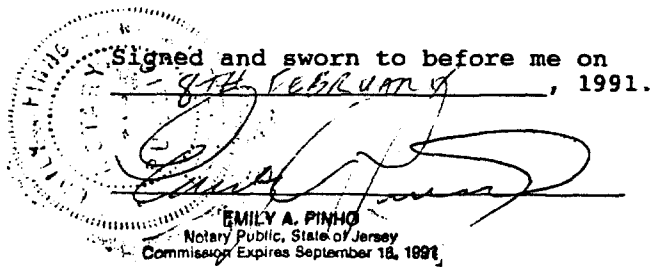 Signed and sworn to before me on
8TH FEBRUARY, 1991.
EMILY A. PINHO
Notary Public, State of Jersey
Commission Expires September 18, 1991